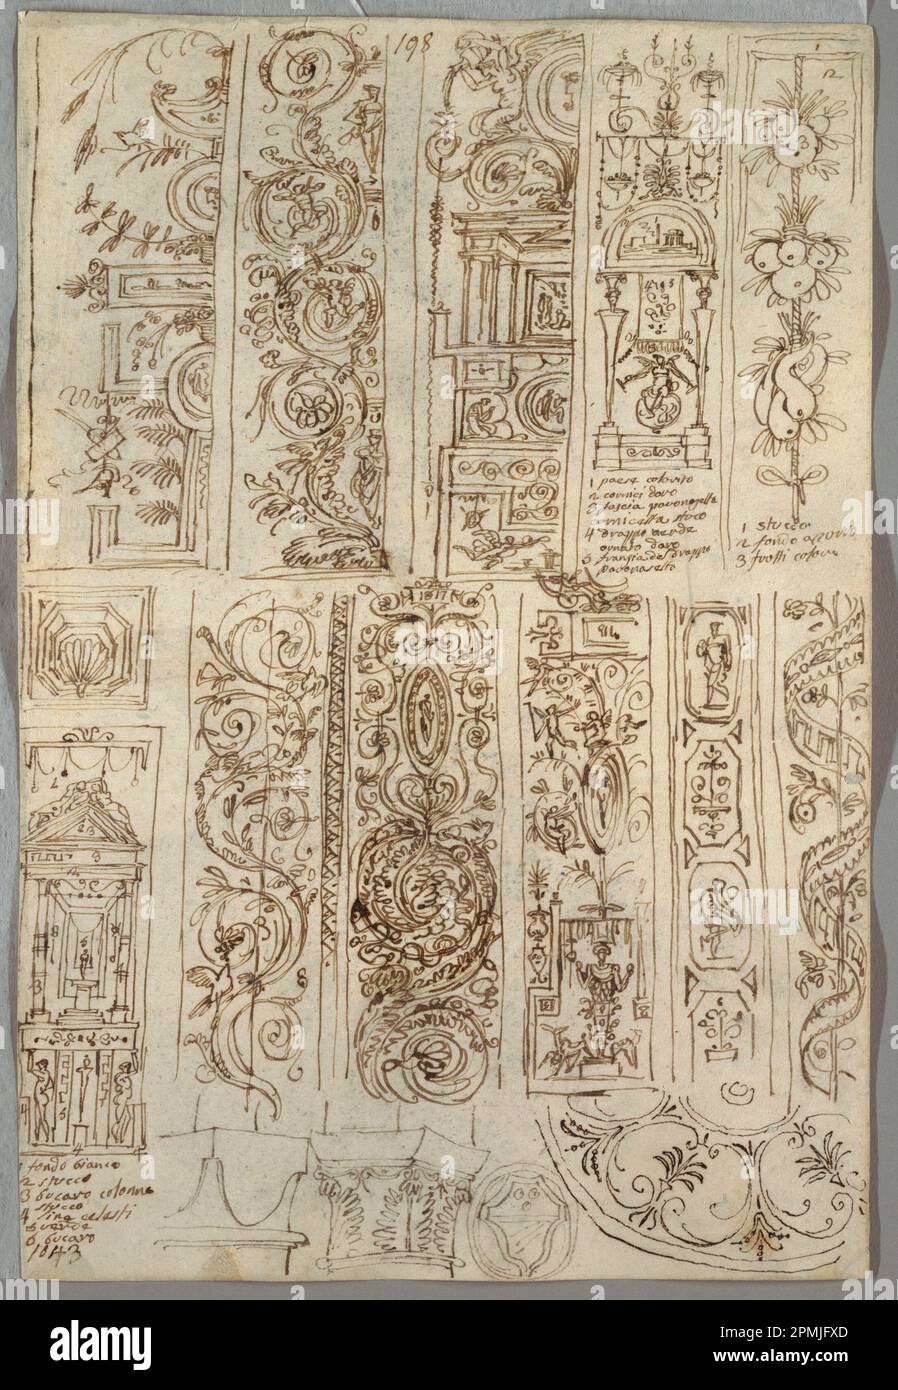 198
1 paese colorito
2 cornici doro
3 fascia pavonazetta
cornicetta stuco
4 drappo verde
ornato doro
5 frangia del drappo
1 stucco
2 fondo azzurro
3 frutti colore
1817
1 fondo bianco
2 stucco
3 bucaro colonne
stucco
4 celesti
5 verde
6 bucaro
1843
alamy
Image ID: 2PMJFXD
www.alamy.com